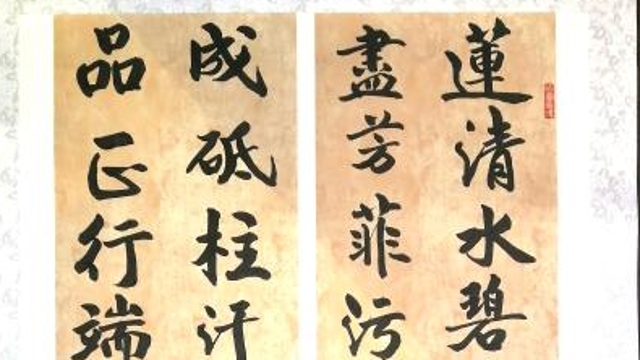 蓮清水碧
盡芳菲污
成砥柱汗
品正行端